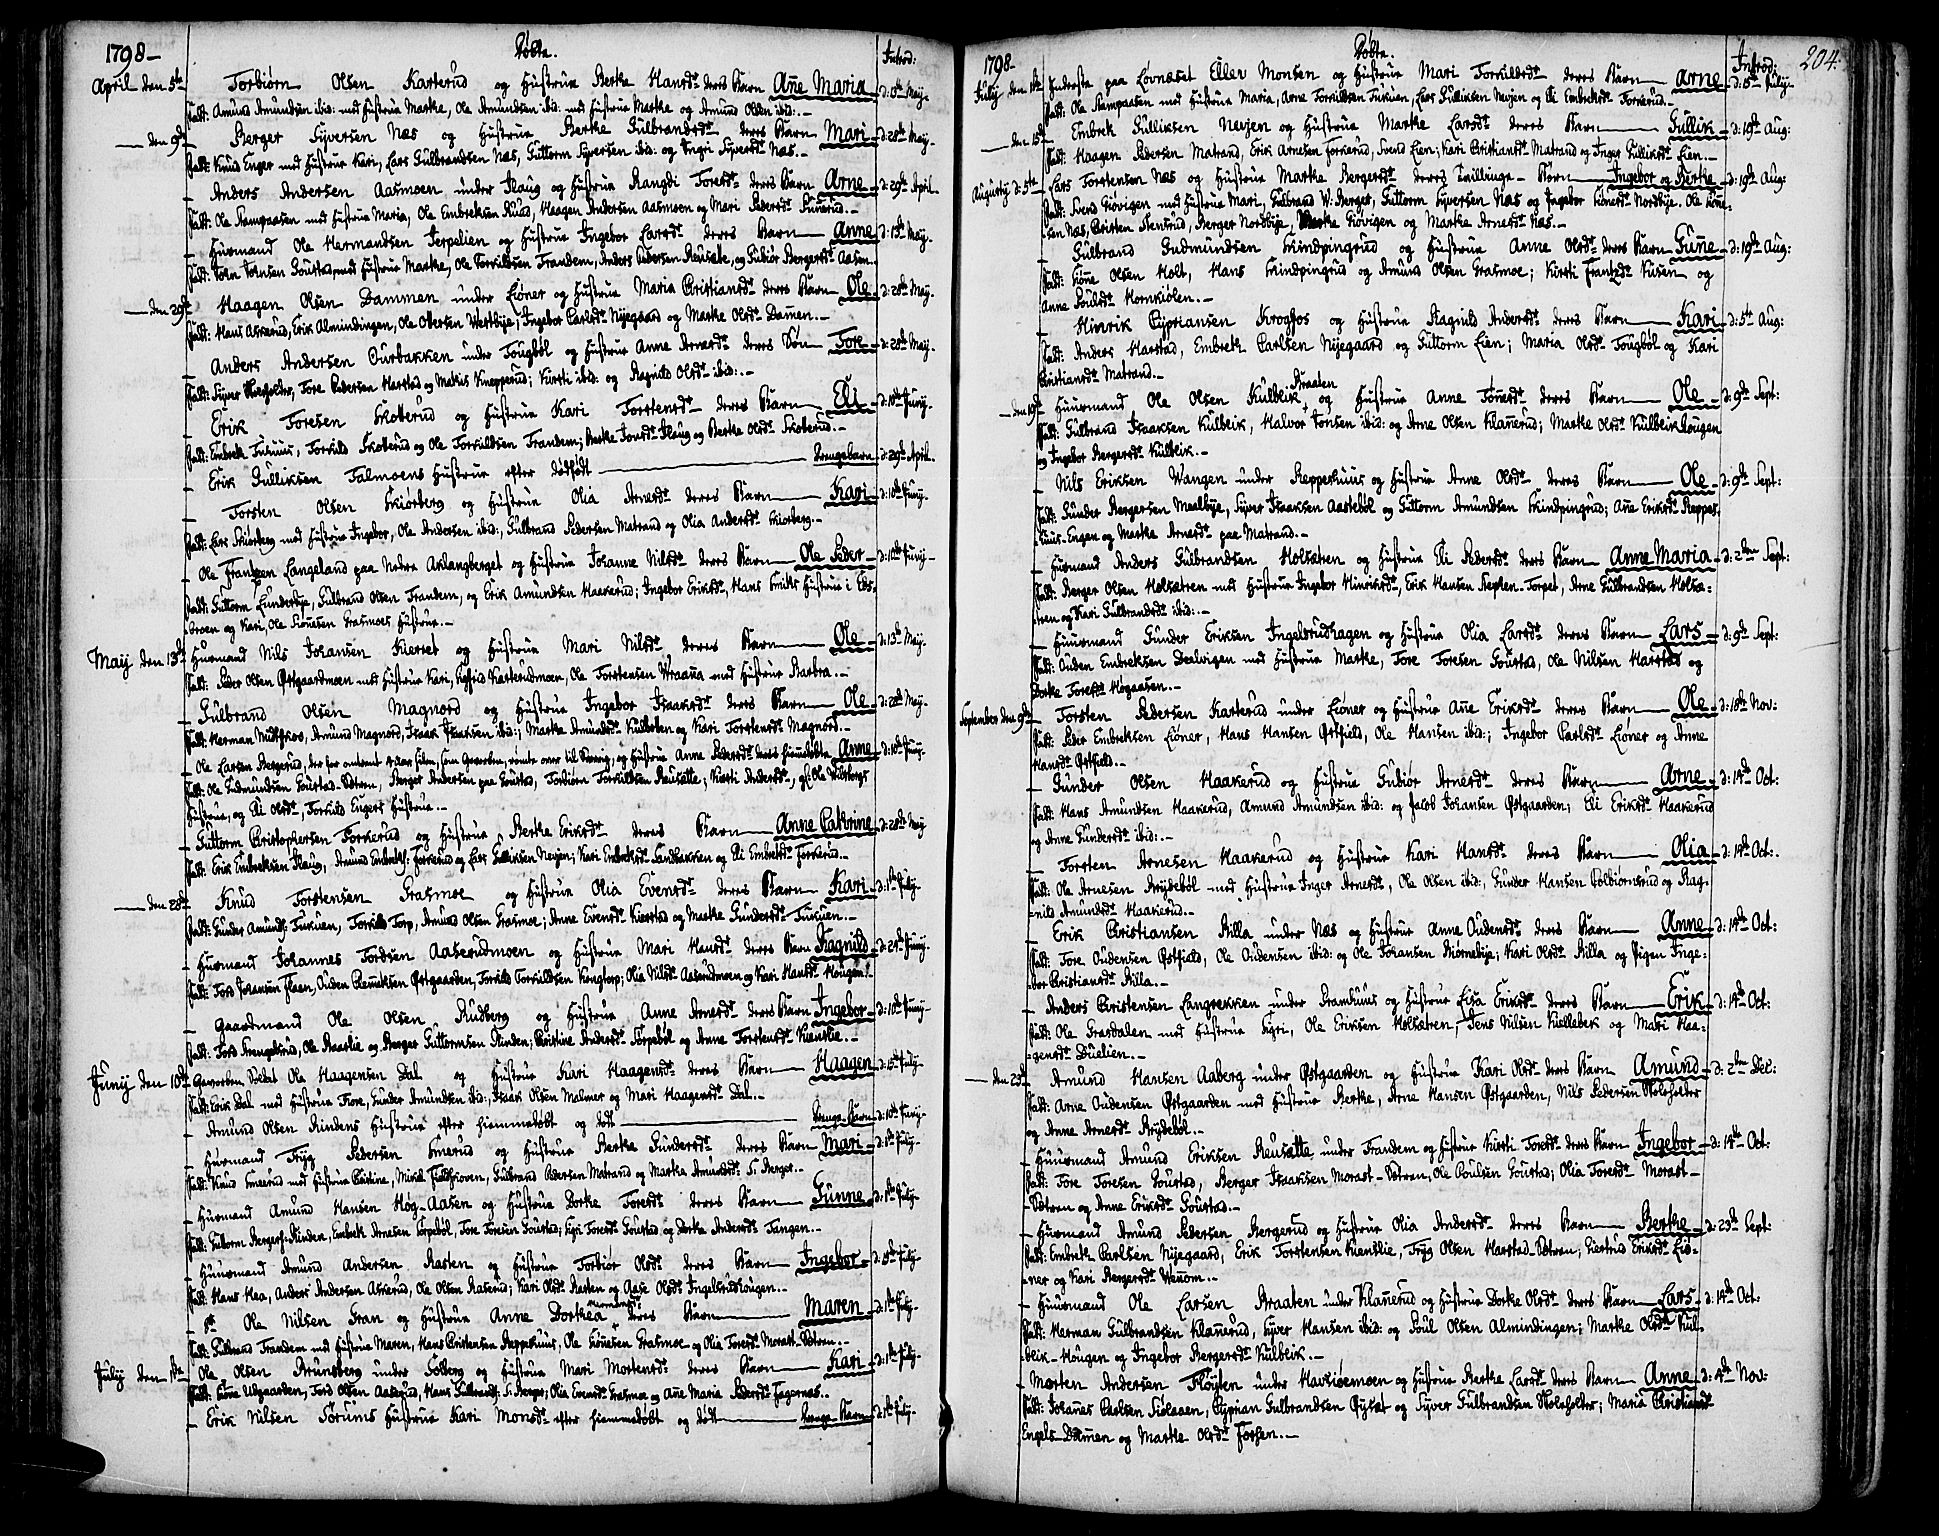 1798—
Døbte.
Introd:
April den 5te Torbiørn Olsen Karterud og Hustrue Berte Hansdt deres Barn Añe Maria d: 18de Maj.
Fadd: Amund Amundsen ibid: med Hustrue Marte, Ole Amundsen ibid: med Hustrue Marte og Amund Olsen ibid:.—
— den 9de Berger Syversen Næs og Hustrue Berte Gulbrandsdt deres Barn Mari d: 28de Maj.
Fadd: Knud Enger med Hustrue Kari, Lars Gulbrandsen Næs, Guttorm Syversen ibid: og Ingri Syversdt Næs.—
Anders Andersen Aasmoen under Flaug og Hustrue Rangdi Toresdt deres Barn Arne d: 29de April
Fadd: Ole Kampaasen med Hustrue Maria, Ole Embreksen Ruud, Haagen Andersen Aasmoen og Mari Pedersdt
Huusmand Ole Hermandsen Terpelien og Hustrue Ingebor Larsdt deres Barn Anne d: 13de Maj.
Fadd: John Johnsen Goustad med Hustrue Marte, Ole Torkildsen Frandem, Anders Pedersen Reusæte, og Gubiør Bergersdt Aasen.
— den 29de Haagen Olsen Dammen under Liøner og Hustrue Maria Christiansdt deres Barn Ole d: 28de Maj.
Fadd: Hans Askerud, Erik Almindingen, Ole Olsen Westbye, Ingebor Carlsdt Nyegaard og Marte Olsdt Damen.—
Anders Andersen Ourbakken under Tougbøl og Hustrue Anne Arnesdt deres Søn Tore d: 28de Maj.
Fadd: Syver Skaſholter, Tore Pedersen Harstad og Matis Knepperud; Kirsti ibid: og Ragnild Olsdt ibid:.—
Erik Toresen Skoterud og Hustrue Kari Torstensdt deres Barn Eli d: 10de Junij.
Fadd: Embrek Tukuus, Torkild Skoterud og Ole Torkildsen Frandem; Berte Flaug og Berte Olsdt Skoterud.—
Erik Gulliksen Talmoens Hustrue efter dødfødt Drengebarn d: 29de April.
Torsten Olsen Skiørberg og Hustrue Olia Arnesdt deres Barn Kari d: 10de Junij.
Fadd: Lars Skiørberg med Hustrue Ingebor, Ole Andersen ibid:, Gulbrand Pedersen Matrand og Olia Andersdt Skiorberg.—
Ole Frantzen Langeland paa Nedre Aklangberget og Hustrue Johanne Nilsdt deres Barn Ole Peder d: 10de Junij—
Fadd: Guttorm Lunderbye, Gulbrand Olsen Frandem, og Erik Amundsen Haakerud; Ingebor Eriksdt, Hans Smiths Hustrue i Eds-
broen og Kari, Ole Siønesen Grasmoes Hustrue.—
Maij den 13de Huusmand Nils Johansen Kierret og Hustrue Mari Nilsdt deres Barn Ole d: 13de Maj.
Fadd: Peder Olsen Østgaardmoen med Hustrue Kari, Karterudmoen, Ole Torstensen Wraaña med Hustrue Barbra.—
Gulbrand Olsen Magnord og Hustrue Ingebor Isaaksdt deres Barn Ole d: 28de Maj.
Fadd: Herman Mulskos, Amund Magnord, Isaak Isaaksen ibid:; Marte Amundsdt Kulbeken og Kari Torstensdt Magnord.—
Ole Larsen Bergerud, og Hustrue Anne Pedersdt deres hiemdøbte Anne d: 10de Junij.
Fadd: Ole Gudmundsen Goustad-Sætren, Berger Andersen paa Goustad, Torbiørn Torkildsen Reusætte; Kirsti Andersdt,
Hustrue, og Eli Olsdt, Torkild Engers Hustrue.—
Guttorm Christophersen Forkerud og Hustrue Berte Eriksdt deres Barn Anne Cathrine d: 28de Maj
Fadd: Erik Embreksen Flaug, Amund Embreks: Forkerud og Lars Gulliksen Nevjen; Kari Embreksdt Sandbakken og Eli Embreksdt Forkerud.—
— den 28de Knud Torstensen Grasmoe og Hustrue Olia Evensdt deres Barn Kari d: 1ste Julij.
Fadd: Gunder Amunds: Tukuen, Torkild Torp, Amund Olsen Grasmoe; Anne Evensdt Kierstad og Marte Gundersdt Tukuen.—
Huusmand Johannes Fordsen Aaserudmoen og Hustrue Mari Hansdt deres Barn Ragnild d: 24de Junij.
Fadd: Ford Johansen Flaen, Ouden Clemmetsen Østgaarden, Torkild Torkildsen Kongtorp; Olia Nilsdt Aaserudmoen og Kari Hansdt Hougen.
Gaardmand Ole Olsen Rudberg og Hustrue Anne Arnesdt deres Barn Ingebor d: 10de Junij.
Fadd: Ford Strengelsrud, Ole Braatlie og Berger Guttormsen Rinden; Christine Andersdt Torpebøl og Anne Torstensdt Kientlie.—
Junij den 10de Gevorben Soldat Ole Haagensen Dal og Hustrue Kari Haagensdt deres Barn Haagen d: 15de Julij.
Fadd: Erik Dal med Hustrue Tore, Gunder Amundsen ibid:, Isaak Olsen Malmer og Mari Haagensdt Dal.—
Amund Olsen Rindens Hustrue efter hiemmedøbt og død Drenge-Barn d: 10de Junij.
Huusmand Tryg Pedersen Smerud og Hustrue Berte Gundersdt deres Barn Mari d: 1ste Julij.
Fadd: Knud Smerud med Hustrue Christine, Mikel Fieldhoven, Gulbrand Pedersen Matrand og Marthe Amundsdt S. Berget.—
Huusmand Amund Hansen Høg-Aasen og Hustrue Dorte Toresdt deres Barn Gunne d: 1ste Julij.
Fadd: Guttorm Bergers: Rinden, Embrek Arnesen Torpebøl, Tore Toresen Goustad; Sigri Toresdt Goustad og Dorte Andersdt Tangen.—
Huusmand Amund Andersen Rasten og Hustrue Torbiør Olsdt deres Barn Ingebor d: 8de Julij.
Fadd: Hans Moa, Anders Andersen Askerud, Ole Olsen Rasterud; Kari Olsdt Rasten og Aase Olsdt Ingelsrudhougen.—
Sr Ole Nilsen Gran og Hustrue Anne Dorthea deres Barn Maren d: 1ste Julij.
Fadd: Gulbrand Frandem med Hustrue Maren, Hans Christensen Reppehuus, Ole Siønesen Grasmoe og Olia Toresdt Morast-Sætren.—
Julij den 1ste Ole Olsen Brunsberg under Solberg og Hustrue Mari Mortensdt deres Barn Kari d: 1ste Julij.
Fadd: Siøne Udgaarden, Ford Olsen Aaserud, Hans Gulbrands: S. Berger; Olia Evensdt Grasmoe og Añe Maria Pedersdt Fagernæs.—
Erik Nilsen Sørums Hustrue Kari Monsdt efter hiemmedøbt og død Drenge-Barn d: 1ste Julij.
1798—
Døbte.
Introd:
204.
Julij den 1ste Inderste paa Løvnæset Eller Monsen og Hustrue Mari Torkildsdt deres Barn Arne d: 15de Julij.
Fadd: Ole Kampaasen med Hustrue Maria, Arne Torkildsen Tukuen, Lars Gulliksen Nevjen og Eli Embreksdt Forkerud.—
— den 15de Embrek Gulliksen Nevjen og Hustrue Marte Larsdt deres Barn Gullik d: 19de Aug:
Fadd: Haagen Pedersen Matrand, Erik Arnesen Forkerud, Svend Lien; Kari Christiansdt Matrand og Inger Gulliksdt Lien.—
Augustij d: 5te Lars Torstensen Næs og Hustrue Marte Bergersdt deres Tvillinge-Børn Ingebor og Berte d: 19de Aug:
Fadd: Svend Giøvigen med Hustrue Mari, Gulbrand W: Berget, Guttorm Syversen Næs og Ingebor Siønesdt Nordbye, Ole Siøne-
sen Næs, Christen Stentrud, Berger Nordbye, Berte Giøvigen og Marte Arnesdt Næs.—
Gulbrand Gudmundsen Skindpingrud og Hustrue Anne Olsdt deres Barn Guñe d: 19de Aug:
Fadd: Siøne Olsen Holt, Hans Skindpingrud og Amund Olsen Grasmoe; Kirsti Frantsdt Kusen og
Anne Poulsdt Hornkiølen.—
Hinrik Cyprtiansen Krogfos og Hustrue Ragnild Andersdt deres Barn Kari d: 5te Aug:
Fadd: Anders Harstad, Embrek Carlsen Nyegaard og Guttorm Lien; Maria Olsdt Tougbøl og Kari
Christiansdt Matrand.—
— den 19de Huusmand Ole Olsen Kulblik Braaten og Hustrue Anne Tønesdt deres Barn Ole d: 9de Sept:
Fadd: Gulbrand Isaaksen Kulbeik, Halvor Jonsen ibid: og Arne Olsen Klañerud; Marte Olsdt Kulbeikhougen
og Ingebor Bergersdt Kulbeik.—
Nils Eriksen Wangen under Reppehuus og Hustrue Anne Olsdt deres Barn Ole d: 9de Sept:
Fadd: Gunder Bergersen Mealbye, Syver Isaaksen Aastebøl og Guttorm Amundsen Skindpingrud; Añe Eriksdt Reppes-
huus-Engen og Marte Arnesdt paa Matrand.—
Huusmand Anders Gulbrandsen Holsætren og Hustrue Eli Pedersdt deres Barn Anne Maria d: 2den Sept:
Fadd: Berger Olsen Holsætren med Hustrue Ingebor Hinriksdt, Erik Hansen Steplen-Torpet, Arne Gulbrandsen Holsæ-
tren og Kari Gulbrandsdt ibid:.—
Huusmand Gunder Eriksen Ingelsrudhagen og Hustrue Olia Larsdt deres Barn Lars d: 9de Sept:
Fadd: Ouden Embreksen Dealvigen med Hustrue Marte, Tore Toresen Goustad, Ole Nilsen Harstad og
Dorte Toresdt Høgaasen.—
September den 9de Torsten Pedersen Karterud under Liøner og Hustrue Añe Eriksdt deres Barn Ole d: 18de Nov:
Fadd: Peder Embreksen Liøner, Hans Hansen Østfield, Ole Hansen ibid:; Ingebor Carlsdt Liøner og Anne
Hansdt Østfield.—
Gunder Olsen Haakerud og Hustrue Gubiør Arnesdt deres Barn Arne d: 14de Oct:
Fadd: Hans Amundsen Haakerud, Amund Amundsen ibid: og Jacob Johansen Østgaarden; Eli Eriksdt Haakerud
og Anne Gundersdt ibid:.—
Torsten Arnesen Haakerud og Hustrue Kari Hansdt deres Barn Olia d: 14de Oct:.
Fadd: Ole Arnesen Brydebøl med Hustrue Inger Arnesdt, Ole Olsen ibid:, Gunder Hansen Colbiørnsrud og Rag-
nild Amundsdt Haakerud.—
Erik Christiansen Rilla under Næs og Hustrue Anne Oudensdt deres Barn Anne d: 14de Oct:
Fadd: Tore Oudensen Østfield, Ole Oudensen ibid: og Ole Johansen Biørnebye; Kari Olsdt Rilla og Pigen Inge-
bor Christiansdt Rilla.—
Anders Christensen Langrekken under Bramhuus og Hustrue Lisa Eriksdt deres Barn Erik d: 14de Oct:
Fadd: Ole Grasdalen med Hustrue Sigri, Ole Eriksen Holsætren, Jens Nilsen Kiellebek og Mari Haa-
gensdt Duelien.—
— den 23de Amund Hansen Aaberg under Østgaarden og Hustrue Kari Olsdt deres Barn Amund d: 2den Dec:
Fadd: Arne Oudensen Østgaarden med Hustrue Berte, Arne Hansen Østgaarden, Nils Pedersen Skoleholder
og Anne Arnesdt Brydebøl.—
Huusmand Amund Eriksen Reusætte under Frandem og Hustrue Kirsti Toresdt deres Barn Ingebor d: 14de Oct:
Fadd: Tore Toresen Goustad, Berger Isaaksen Morast-Sætren, Ole Poulsen Goustad; Olia Toresdt Morast-
Sætren og Anne Eriksdt Goustad.—
Huusmand Amund Pedersen Bergerud og Hustrue Olia Andersdt deres Barn Berte d: 23de Sept:
Fadd: Embrek Carlsen Nyegaard, Erik Torstensen Kientlie, Tryg Olsen Harstad-Sætren; Giertrud Eriksdt Liø-
ner og Kari Bergersdt Wennom.—
Huusmand Ole Larsen Braaten under Klañerud og Hustrue Dorte Olsdt deres Barn Lars d: 14de Oct:
Fadd: Herman Gulbrandsen Klañerud, Syver Hansen ibid: og Poul Olsen Almindingen; Marte Olsdt Kul-
blik-Hougen og Ingebor Bergersdt Kulbeik.—
Morten Andersen Fløyten under Haviøemoen og Hustrue Berte Larsdt deres Barn Anne d: 4de Nov:
Fadd: Johañes Carlsen Siølaaen, Cyprian Gulbrandsen Øysæt og Syver Gulbrandsen Skoleholter; Maria Christiansdt
Engels-Damen og Marte Olsdt Forsen.—